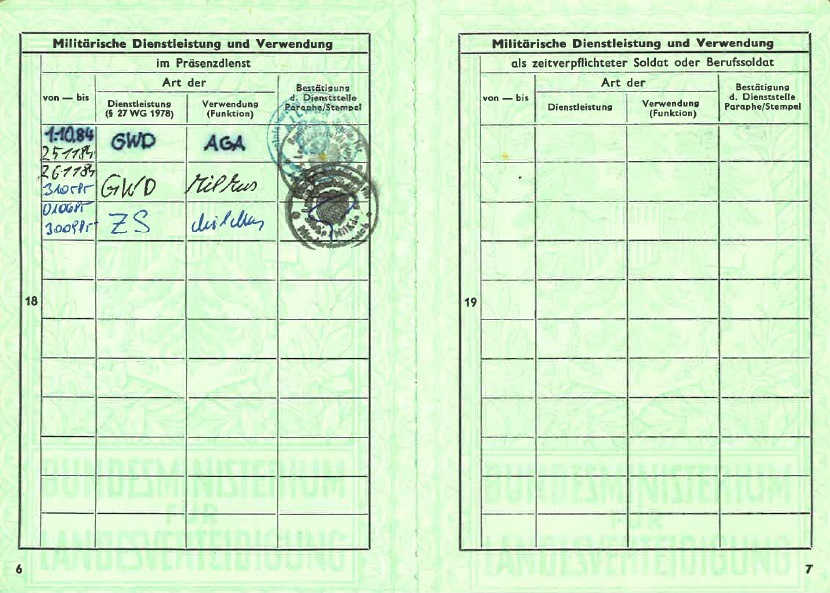 Militärische Dienstleistung und Verwendung
im Präsenzdienst
von — bis
Art der
Dienstleistung
(§ 27 WG 1978)
Verwendung
(Funktion)
Bestätigung
d. Dienststelle
Paraphe/Stempel
1.10.84
251184
GWD
AGA
261184
310585
GWD
MilMus
010685
300985
ZS
MilMus
18
BUNDESMINISTERIUM
FÜR
LANDESVERTEIDIGUNG
6
Militärische Dienstleistung und Verwendung
als zeitverpflichteter Soldat oder Berufssoldat
von — bis
Art der
Dienstleistung
Verwendung
(Funktion)
Bestätigung
d. Dienststelle
Paraphe/Stempel
19
BUNDESMINISTERIUM
FÜR
LANDESVERTEIDIGUNG
7